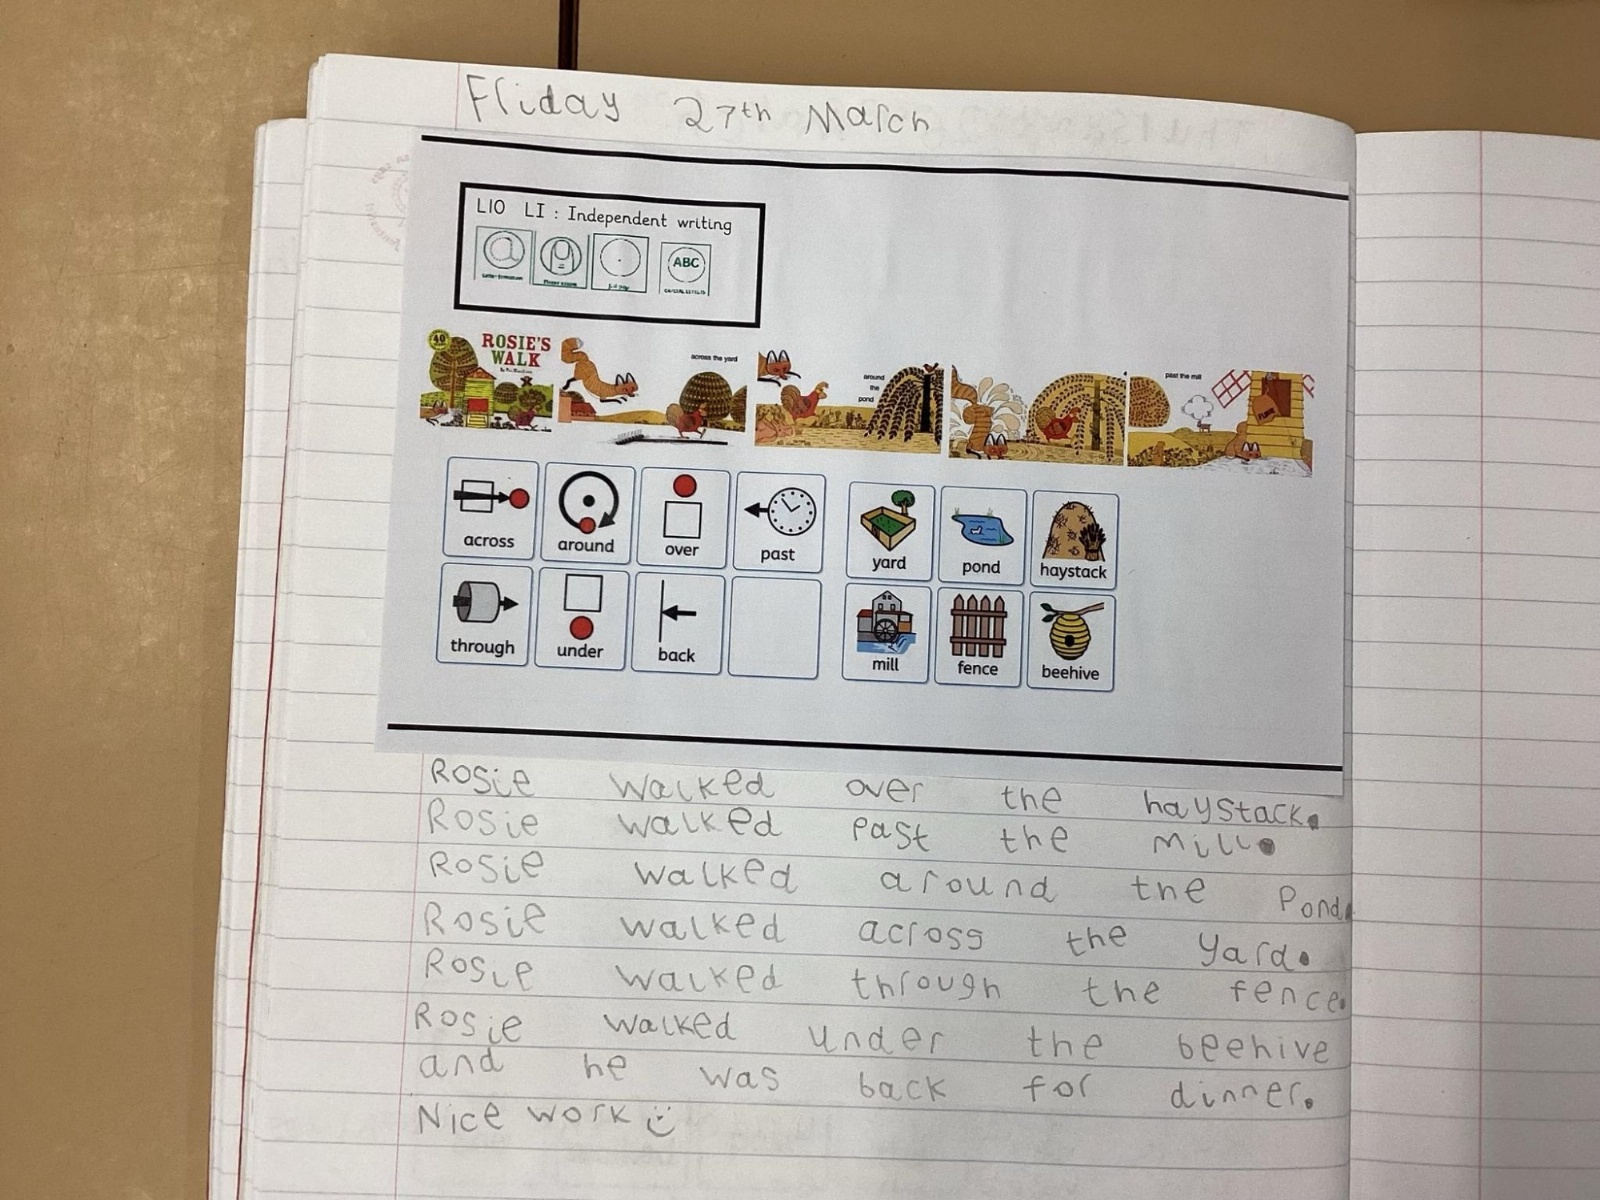 Friday 27th March
L10 LI : Independent writing
ABC
40
ROSIE'S
WALK
across the yard
around
the
pond
past the mill
FLOUR
across around over past yard pond haystack
through under back mill fence beehive
Rosie walked over the haystack.
Rosie walked past the mill.
Rosie walked around the pond.
Rosie walked across the yard.
Rosie walked through the fence.
Rosie walked under the beehive
and he was back for dinner.
Nice work